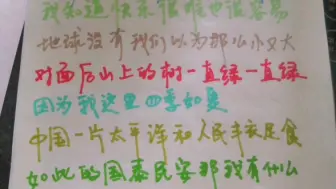 我知道快乐很难也很容易
地球没有我们以为那么小又大
对面后山上的树一直绿一直绿
因为我这里四季如是
中国一片太平洋和人民丰衣足食
如此的国泰民安那我有什么